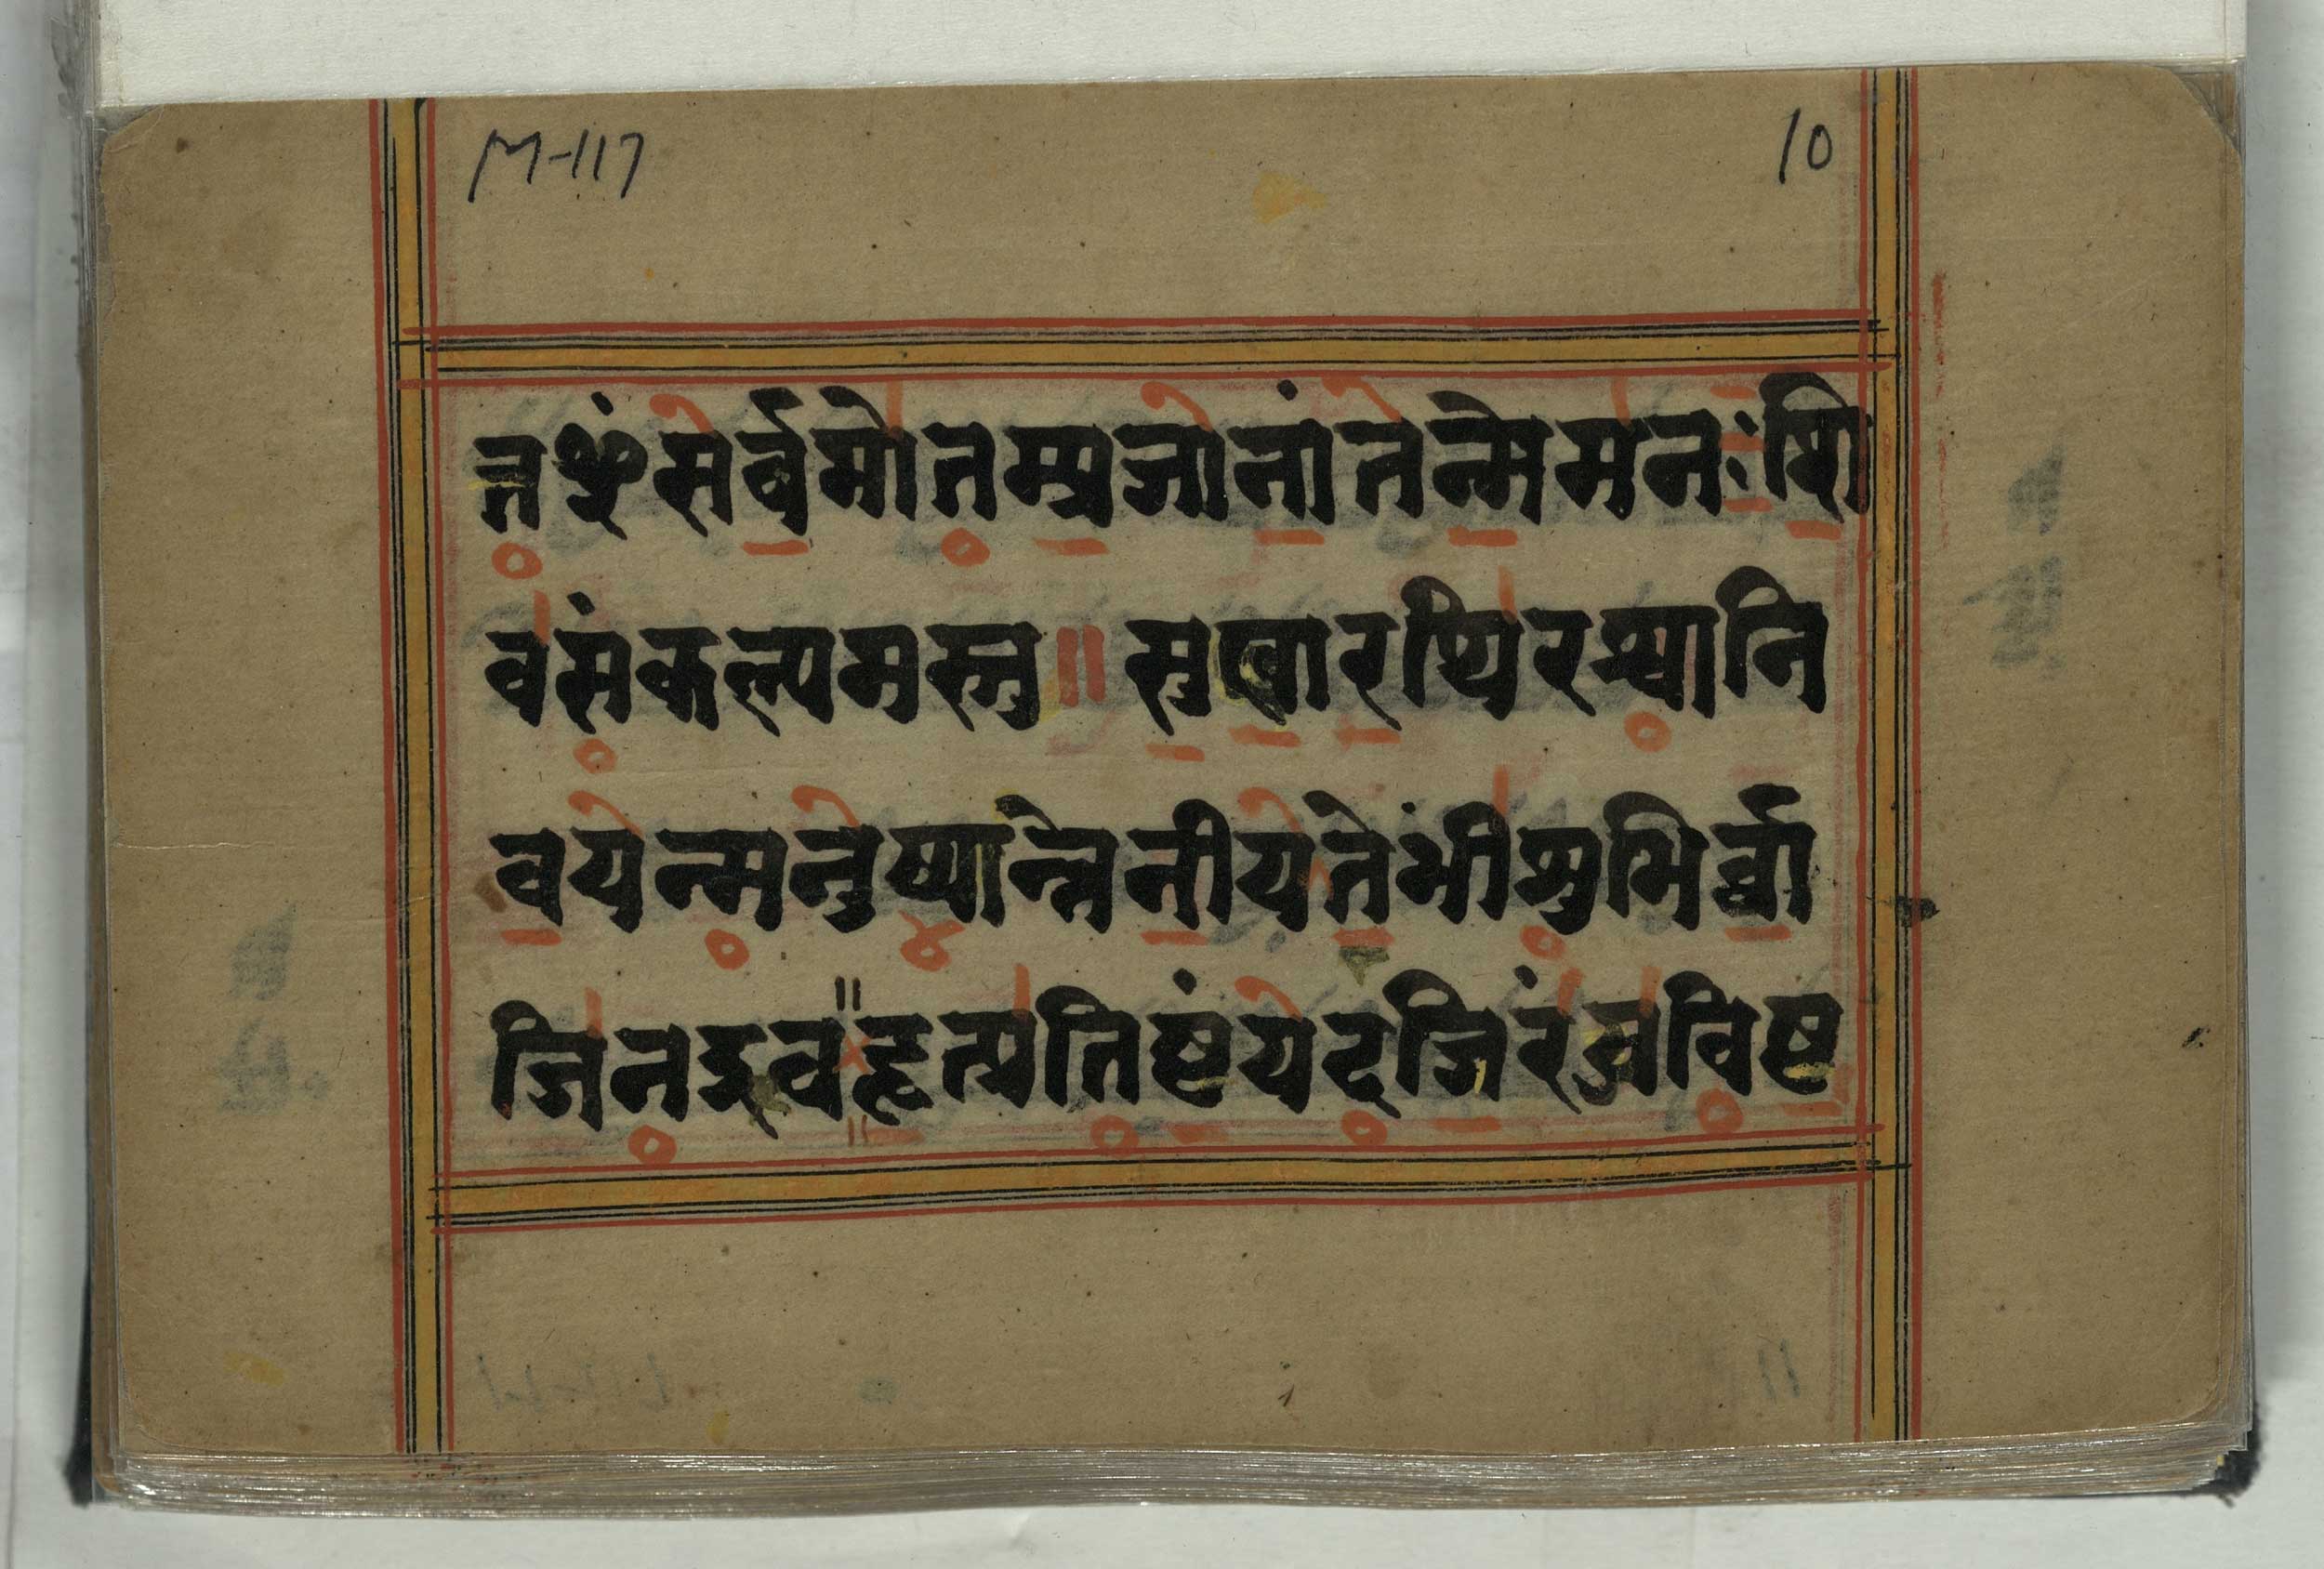 M-117 10
त्तꣳसर्वमोतम्प्रजानांतन्मेमनःशि
वसंकल्पमस्तु ॥ सुखारथिरश्वानि
वयन्मनुष्यान्नेनीयतेभीशुभिर्वा
जिनइवहृत्प्रतिष्ठंयदजिरंजविष्ठ